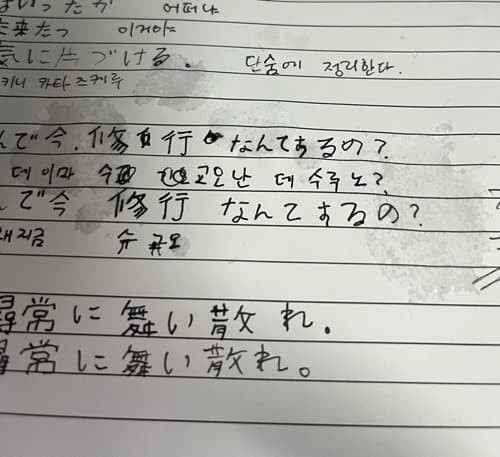 いったか 어떠냐
来たっ 이거야
気に片づける. 단숨에 정리한다.
키니 카타즈케루
んで今. 修 行 なんてするの?
데 이마 수 교오난 데 수루 노?
で今 修行 なんてするの?
왜지금 슈 교오
尋常に舞い散れ.
尋常に舞い散れ。